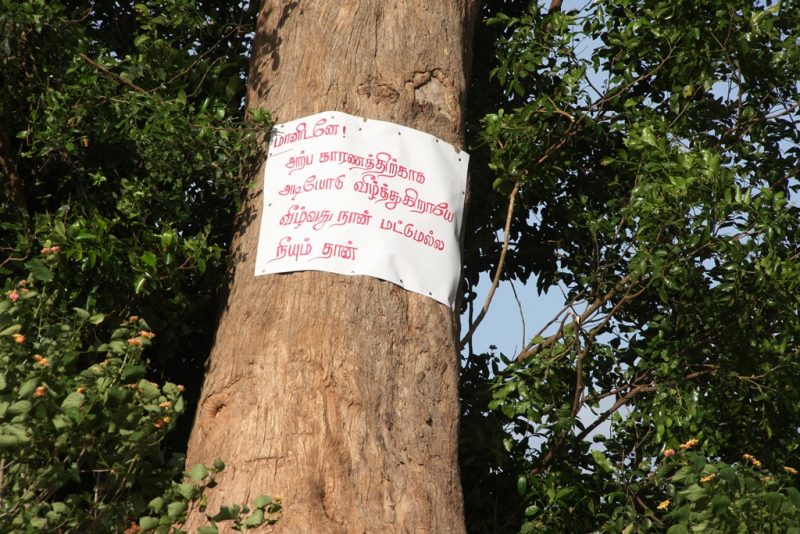 மானிடனே!
அற்ப காரணத்திற்காக
அடியோடு வீழ்த்துகிறாயே
வீழ்வது நான் மட்டுமல்ல
நீயும் தான்